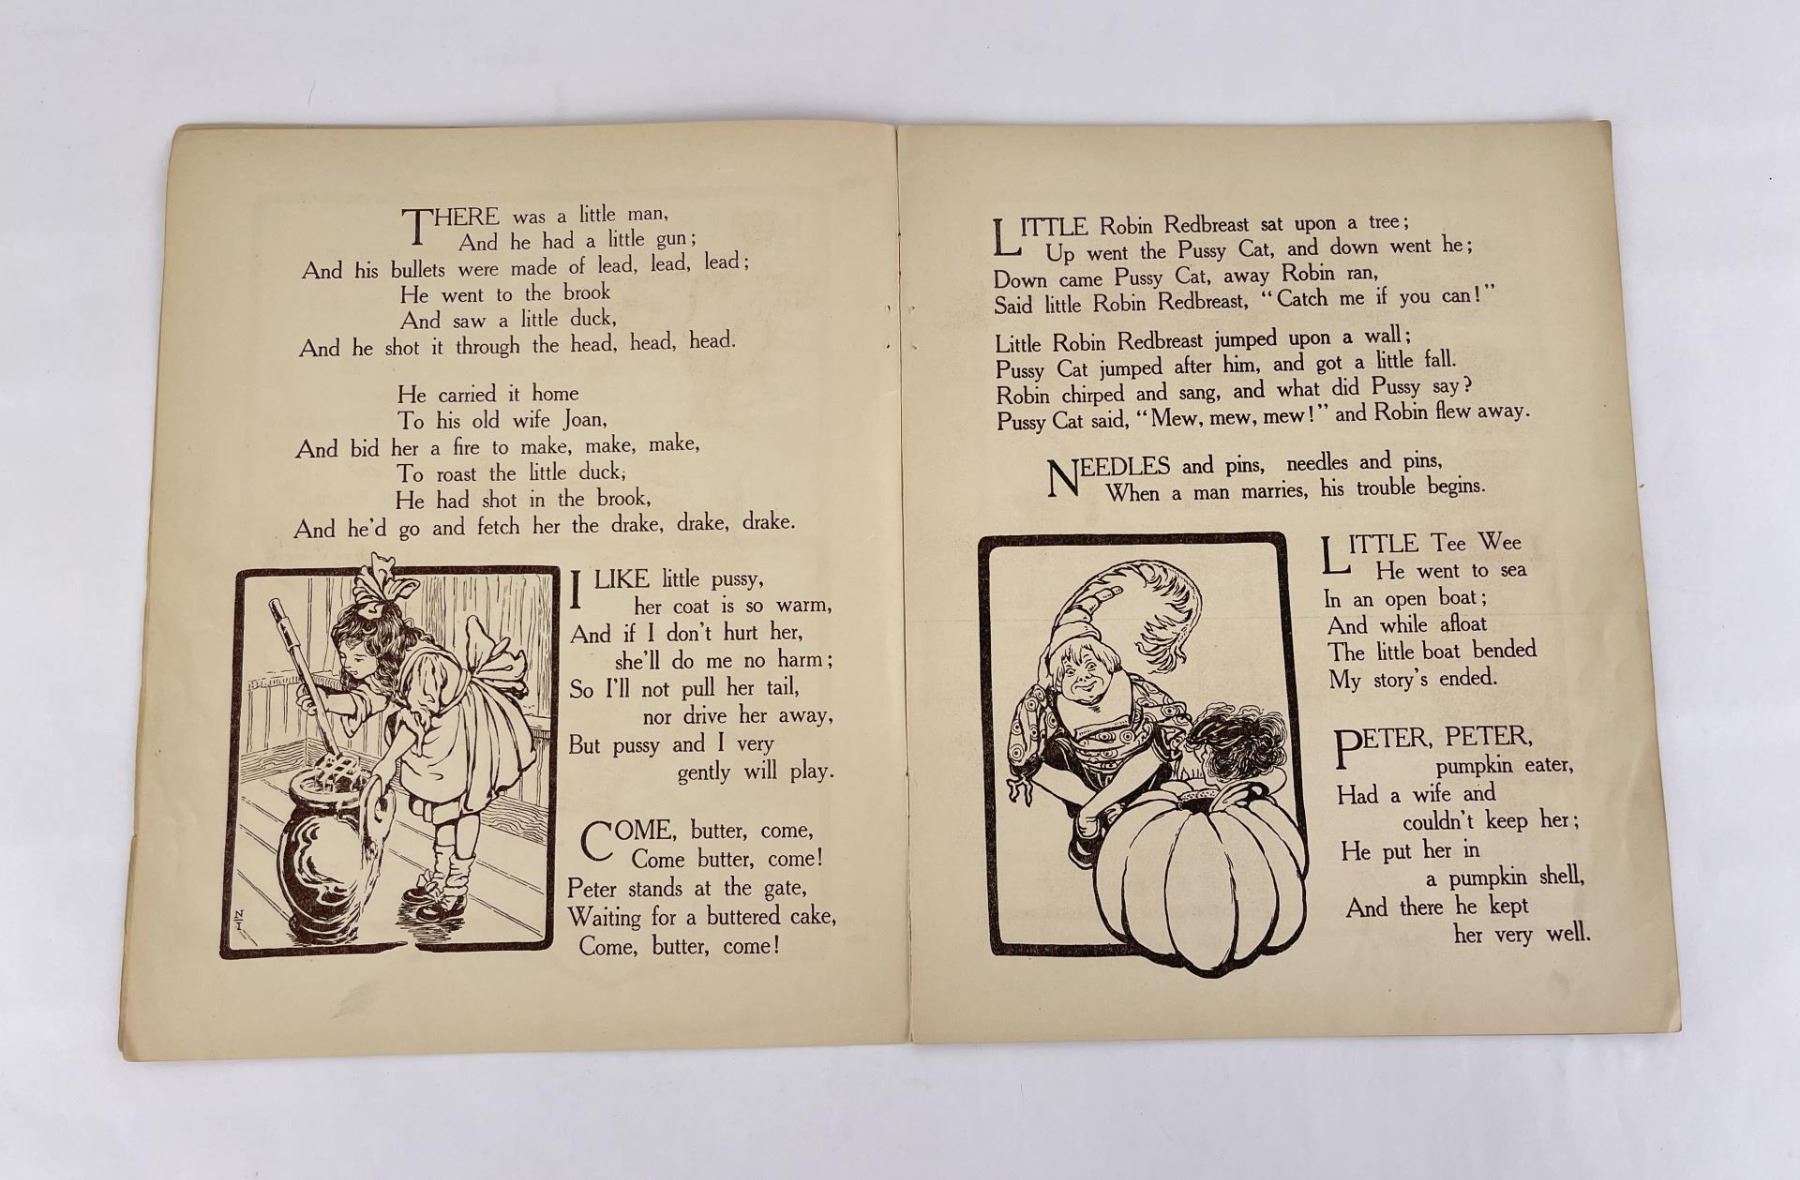 THERE was a little man,
And he had a little gun;
And his bullets were made of lead, lead, lead;
He went to the brook
And saw a little duck,
And he shot it through the head, head, head.
He carried it home
To his old wife Joan,
And bid her a fire to make, make, make,
To roast the little duck,
He had shot in the brook,
And he'd go and fetch her the drake, drake, drake.
I LIKE little pussy,
her coat is so warm,
And if I don't hurt her,
she'll do me no harm;
So I'll not pull her tail,
nor drive her away,
But pussy and I very
gently will play.
COME, butter, come,
Come butter, come!
Peter stands at the gate,
Waiting for a buttered cake,
Come, butter, come!
LITTLE Robin Redbreast sat upon a tree;
Up went the Pussy Cat, and down went he;
Down came Pussy Cat, away Robin ran,
Said little Robin Redbreast, "Catch me if you can!"
Little Robin Redbreast jumped upon a wall;
Pussy Cat jumped after him, and got a little fall.
Robin chirped and sang, and what did Pussy say?
Pussy Cat said, "Mew, mew, mew!" and Robin flew away.
NEEDLES and pins, needles and pins,
When a man marries, his trouble begins.
LITTLE Tee Wee
He went to sea
In an open boat;
And while afloat
The little boat bended
My story's ended.
PETER, PETER,
pumpkin eater,
Had a wife and
couldn't keep her;
He put her in
a pumpkin shell,
And there he kept
her very well.